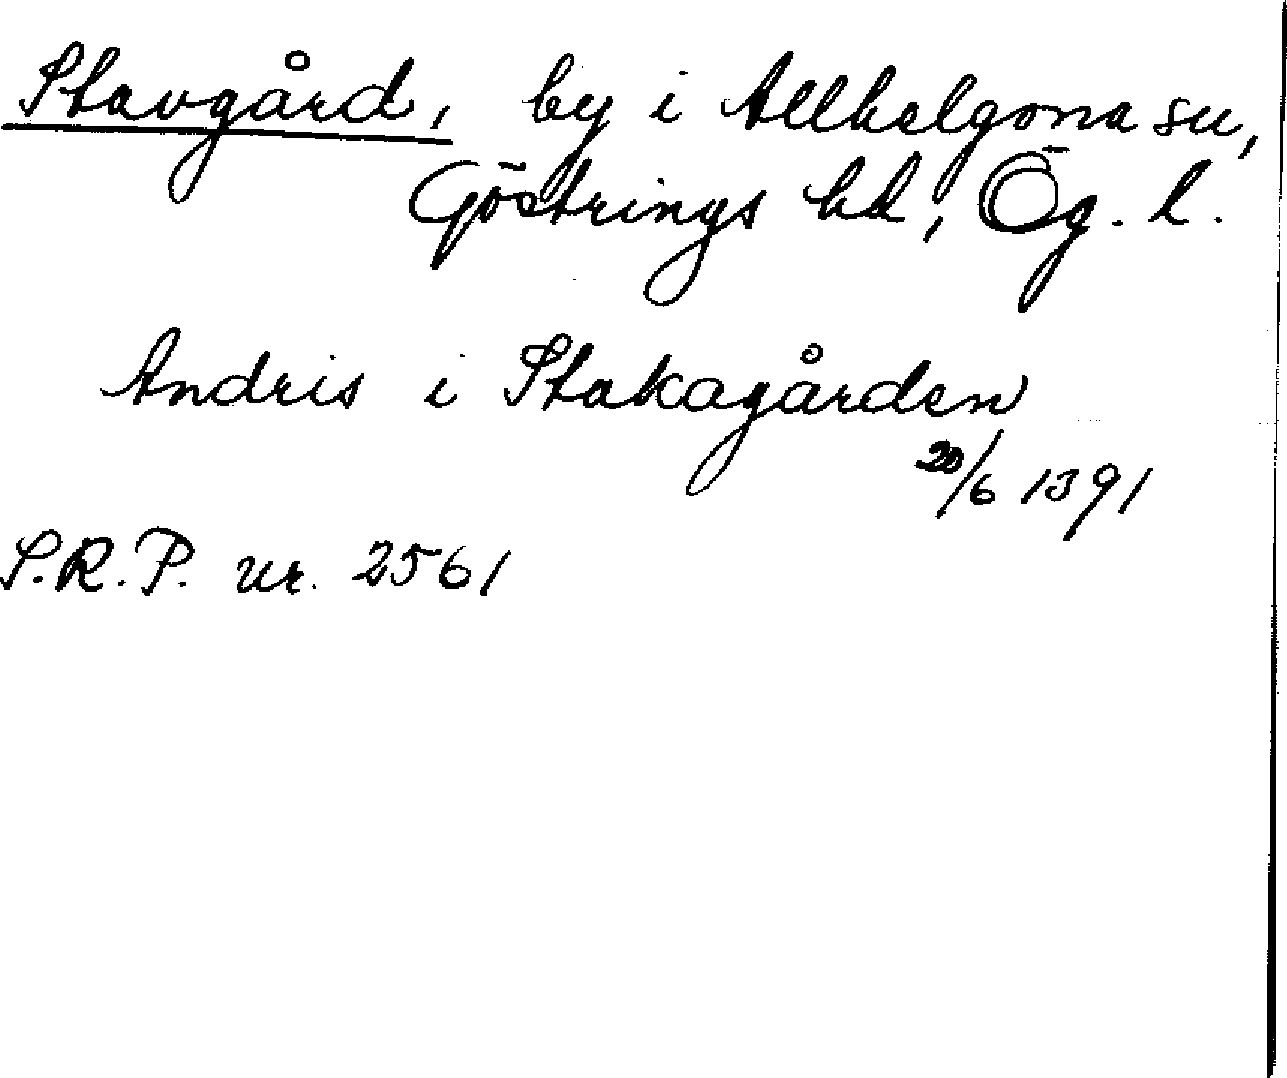 Stavgård, by i Allhelgona sn,
Göstrings hd, Ög. l.
Andris i Stakagården
20/6 1391
S.R.P. nr. 2561